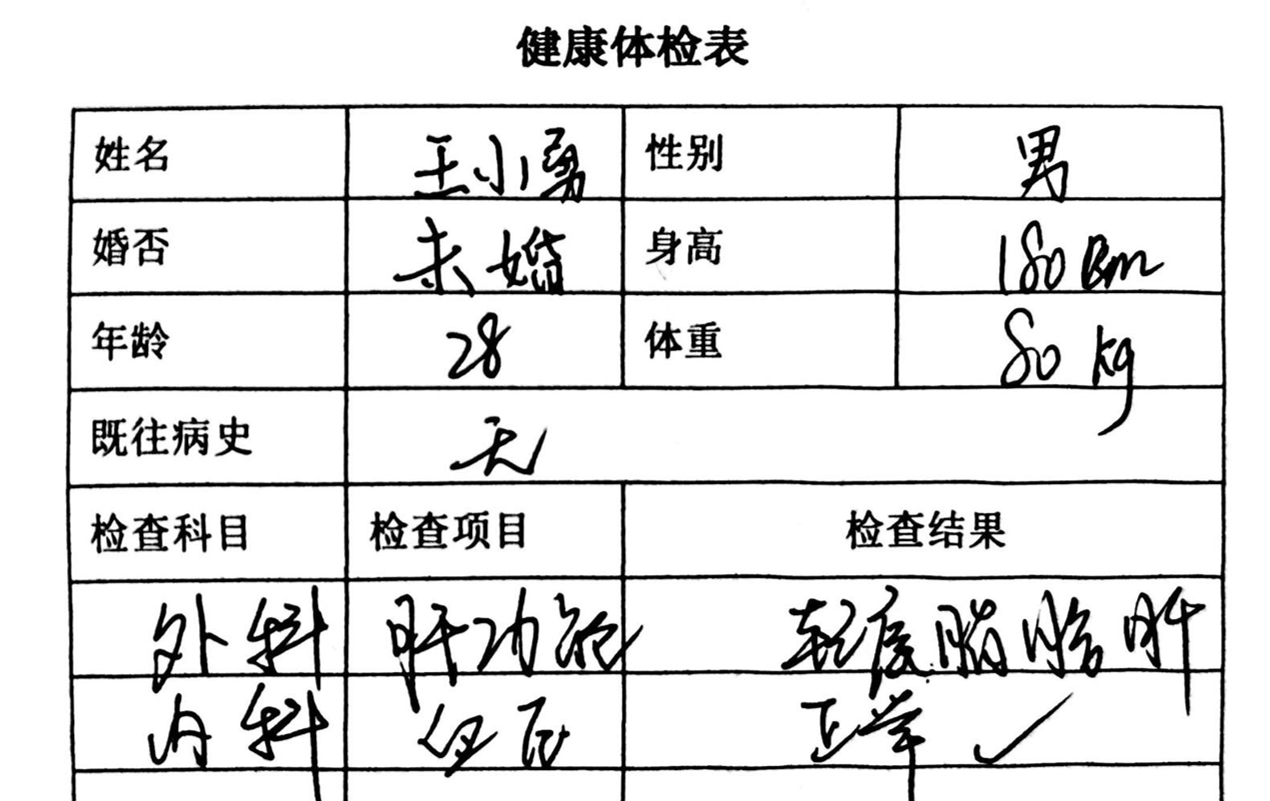 健康体检表
姓名 王小勇 性别 男
婚否 未婚 身高 180cm
年龄 28 体重 80kg
既往病史 无
检查科目 检查项目 检查结果
外科 肝功能 轻度脂肪肝
内科 血压 正常 ✓